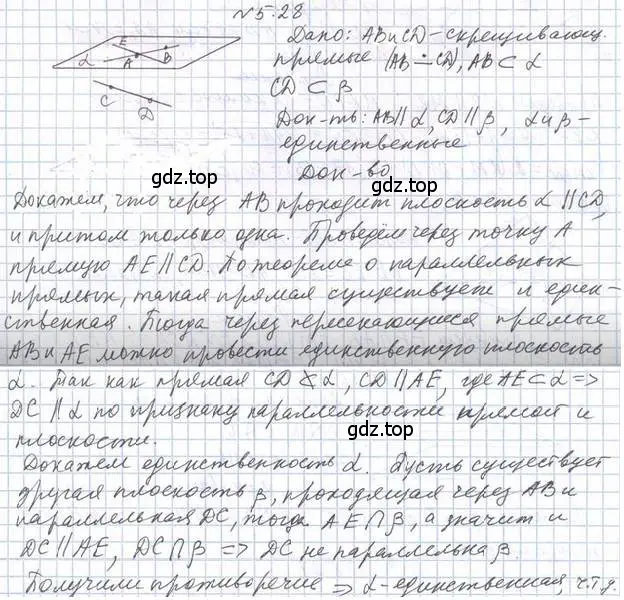 №5.28
Дано: AB и CD – скрещивающ.
прямые (AB ∸ CD), AB ⊂ α
CD ⊂ β
Док-ть: AB ∥ α, CD ∥ β, α и β –
единственные
Док-во
E
α
A
B
C
D
gdz.top
gdz.top
Докажем, что через AB проходит плоскость α ∥ CD,
и притом только одна. Проведём через точку A
прямую AE ∥ CD. По теореме о параллельных
gdz.top
прямых, такая прямая существует и един-
ственная. Тогда через пересекающиеся прямые
AB и AE можно провести единственную плоскость
α. Так как прямая CD ⊄ α, CD ∥ AE, где AE ⊂ α =>
DC ∥ α по признаку параллельности прямой и
gdz.top
плоскости.
Докажем единственность α. Пусть существует
другая плоскость β, проходящая через AB и
gdz.top
параллельная DC, тогда AE ∩ β, а значит и
DC ∥ AE, DC ∩ β => DC не параллельна β.
Получили противоречие => α – единственная, ч.т.д.
gdz.top